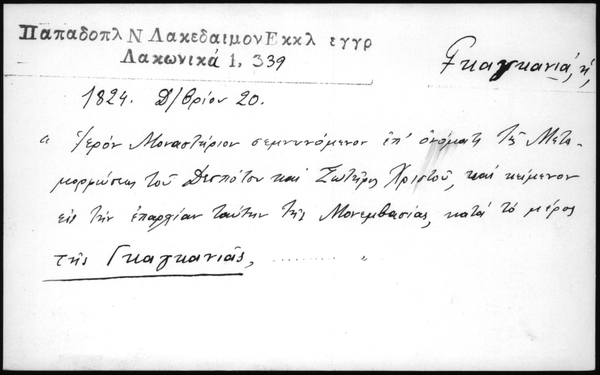 Παπαδοπλ Ν Λακεδαιμον Εκκλ εγγρ
Λακωνικά 1, 339
Γκαγκανιά, ἡ,
1824. Δ/βρίου 20.
"Ἱερόν Μοναστήριον σεμνυνόμενον ἐπ' ὀνόματι τῆς Μετα-
μορφώσεως τοῦ Δεσπότου καί Σωτῆρος Χριστοῦ, καί κείμενον
εἰς τήν ἐπαρχίαν ταύτην τῆς Μονεμβασίας, κατά τό μέρος
τῆς Γκαγκανιᾶς, ........ "